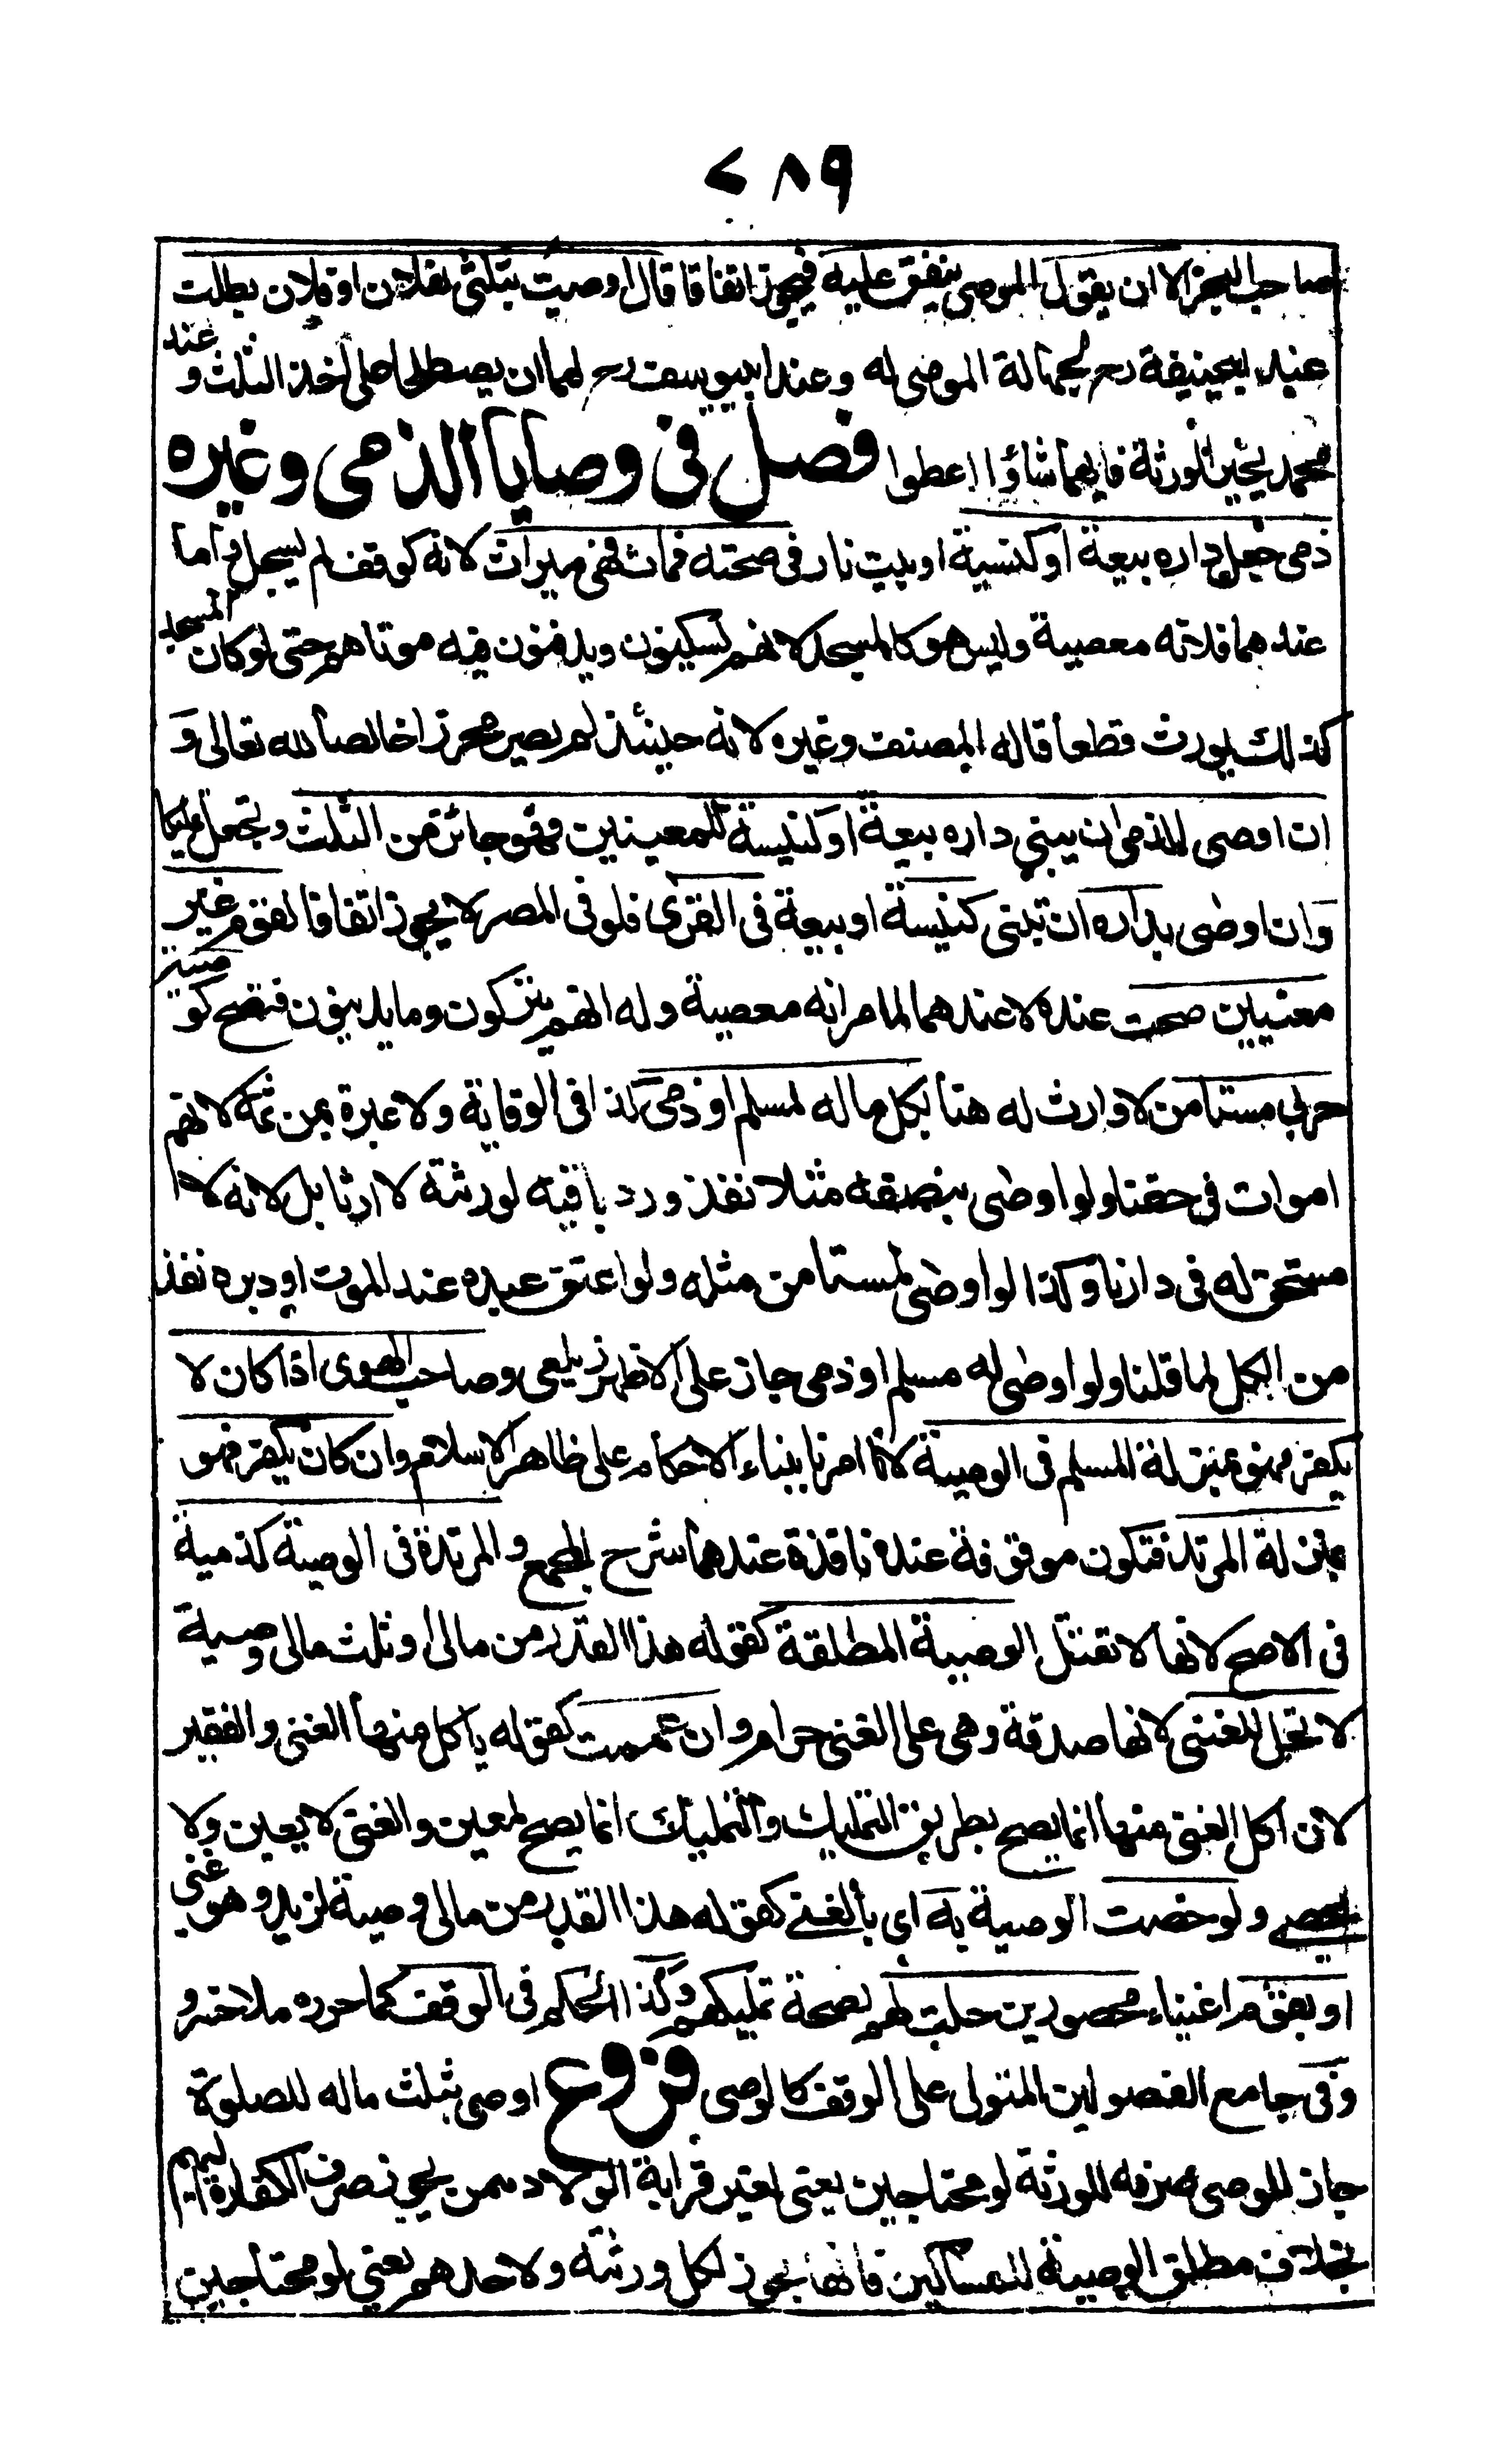 ٧٨٩
صاحب البحر الا ان يقول الموصى ينفق عليه فيجوز اتفاقا قال اوصيت بثلثى لفلان او فلان بطلت
عند ابيحنيفة رح لجهالة الموصى له وعند ابييوسف رح لهما ان يصطلحا على اخذ الثلث و عند
محمد يخير الورثة فايهما شاؤا اعطوا فصل فى وصايا الذمى وغيره
ذمى جعل داره بيعة او كنيسة او بيت نار فى صحته فمات فهى ميراث لانه كوقف لم يسجل واما
عندهما فلانه معصية وليس هو كالمسجد لانهم يسكنون ويدفنون فيه موتاهم حتى لو كان المسجد
كذلك يورث قطعا قاله المصنف وغيره لانه حينئذ لم يصر محرزا خالصا لله تعالى و
ان اوصى الذمى ان يبنى داره بيعة او كنيسة لمعينين فهو جائز من الثلث ويجعل تمليكا
وان اوصى بداره ان تبنى كنيسة او بيعة فى القرى فلو فى المصر لا يجوز اتفاقا لقوم غير
معينين صحت عنده لا عندهما لما مر انه معصية وله انهم يتركون وما يدينون فتصح كوصية
حربى مستامن لا وارث له هنا بكل ماله لمسلم او ذمى كذا فى الوقاية ولا عبرة بمن ثمة لانهم
اموات فى حقنا ولو اوصى بنصفه مثلا نفذ ورد باقيه لورثته لا ارثا بل لانه لا
مستحق له فى دارنا وكذا لو اوصى لمستامن مثله ولو اعتق عبده عند الموت او دبره نفذ
من الكل لما قلنا ولو اوصى له مسلم او ذمى جاز على الاظهر زيلعى وصاحب الهوى اذا كان لا
يكفر فهو بمنزلة المسلم فى الوصية لانا امرنا ببناء الاحكام على ظاهر الاسلام وان كان يكفر فهو
بمنزلة المرتد فتكون موقوفة عنده نافذة عندهما شرح المجمع والمرتدة فى الوصية كذمية
فى الاصح لانها لا تقتل الوصية المطلقة كقوله هذا القدر من مالى او ثلث مالى وصية
لا تحل للغنى لانها صدقة وهى على الغنى حرام وان عممت كقوله ياكل منها الغنى والفقير
لان اكل الغنى منها انما يصح بطريق التمليك والتمليك انما يصح لمعين والغنى لا يعين ولا
يحصى ولو خصت الوصية به اى بالغنى كقوله هذا القدر من مالى وصية لزيد وهو غنى
او بقوم اغنياء محصورين حلت لهم لصحة تمليكهم وكذا الحكم فى الوقف كما حرره ملا خسرو
وفى جامع الفصولين المتولى على الوقف كالوصى فروع اوصى بثلث ماله للصلوة
جاز للوصى صرفه للورثة لو محتاجين يعنى لغير قرابة الولاد ممن يجوز صرف الكفارة اليهم
بخلاف مطلق الوصية للمساكين فانها تجوز لكل ورثته ولاحدهم يعنى لو محتاجين